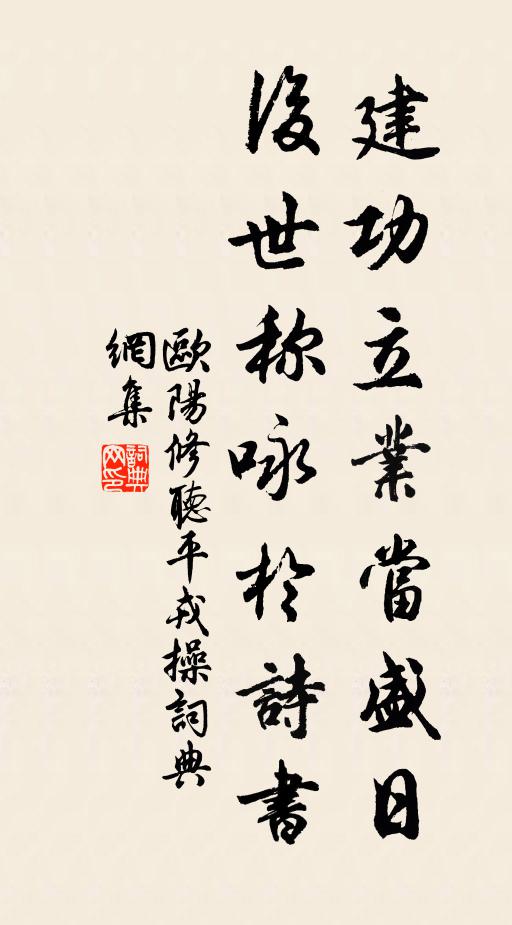 建功立業當盛日
後世称咏於詩書
歐陽修聽平戎操詞典
網集
詞典
网印